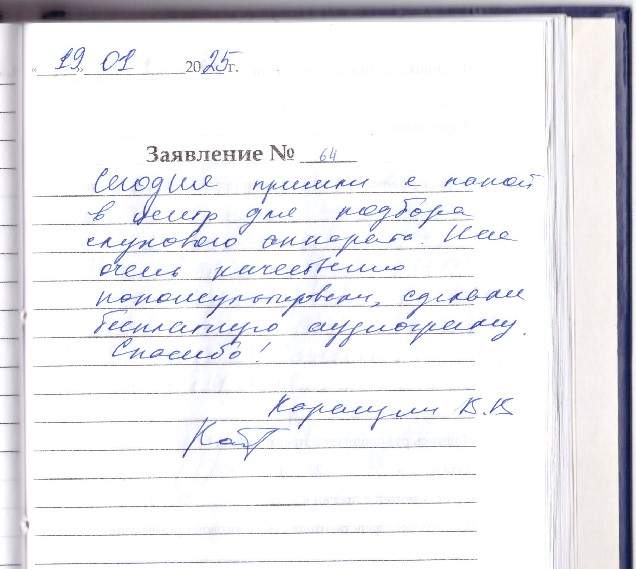 "19" 01 2025г.
Заявление № 64
Сегодня пришли с папой
в центр для подбора
слухового аппарата. Нас
очень качественно
проконсультировали, сделали
бесплатную аудиограмму.
Спасибо!
В.В